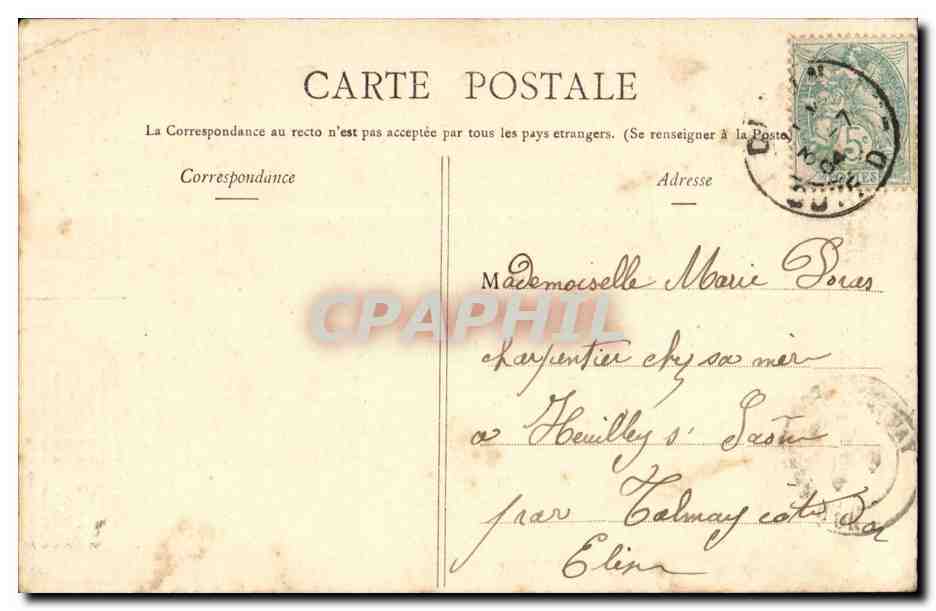 CARTE POSTALE
La Correspondance au recto n'est pas acceptée par tous les pays etrangers. (Se renseigner à la Poste
Correspondance
Adresse
Mademoiselle Marie Poras
charpentier chz sa mèr
a Heuilley s' Saône
par Talmay cote d'or
CPAPHIL